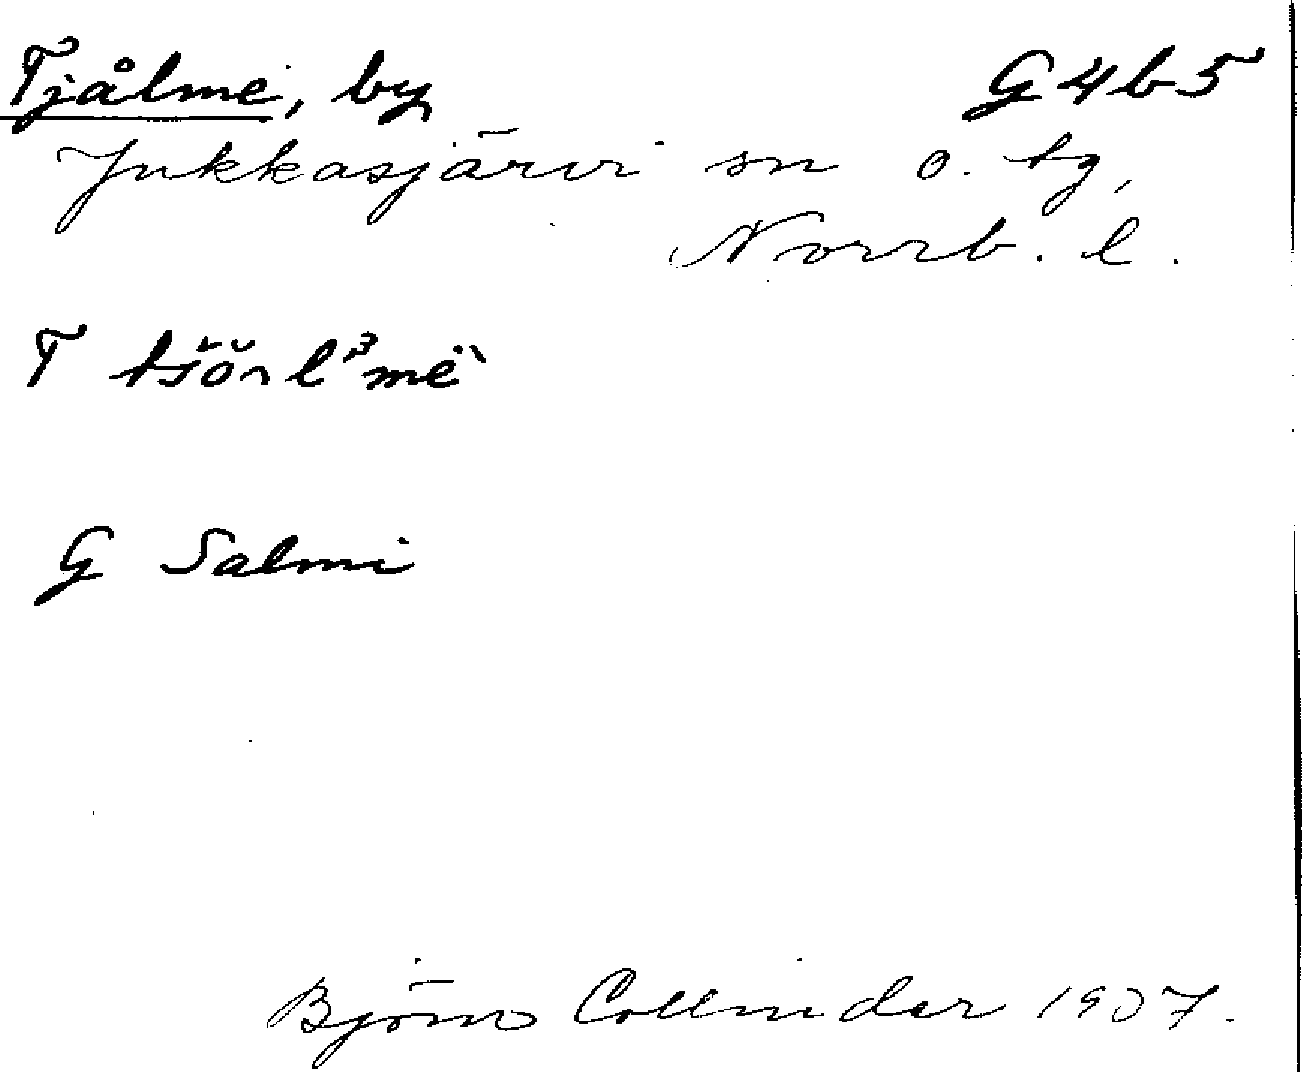 Tjålme, by G4b5
Jukkasjärvi sn o. tg,
Norrb. l.
T
G Salmi
Björn Collinder 1907.